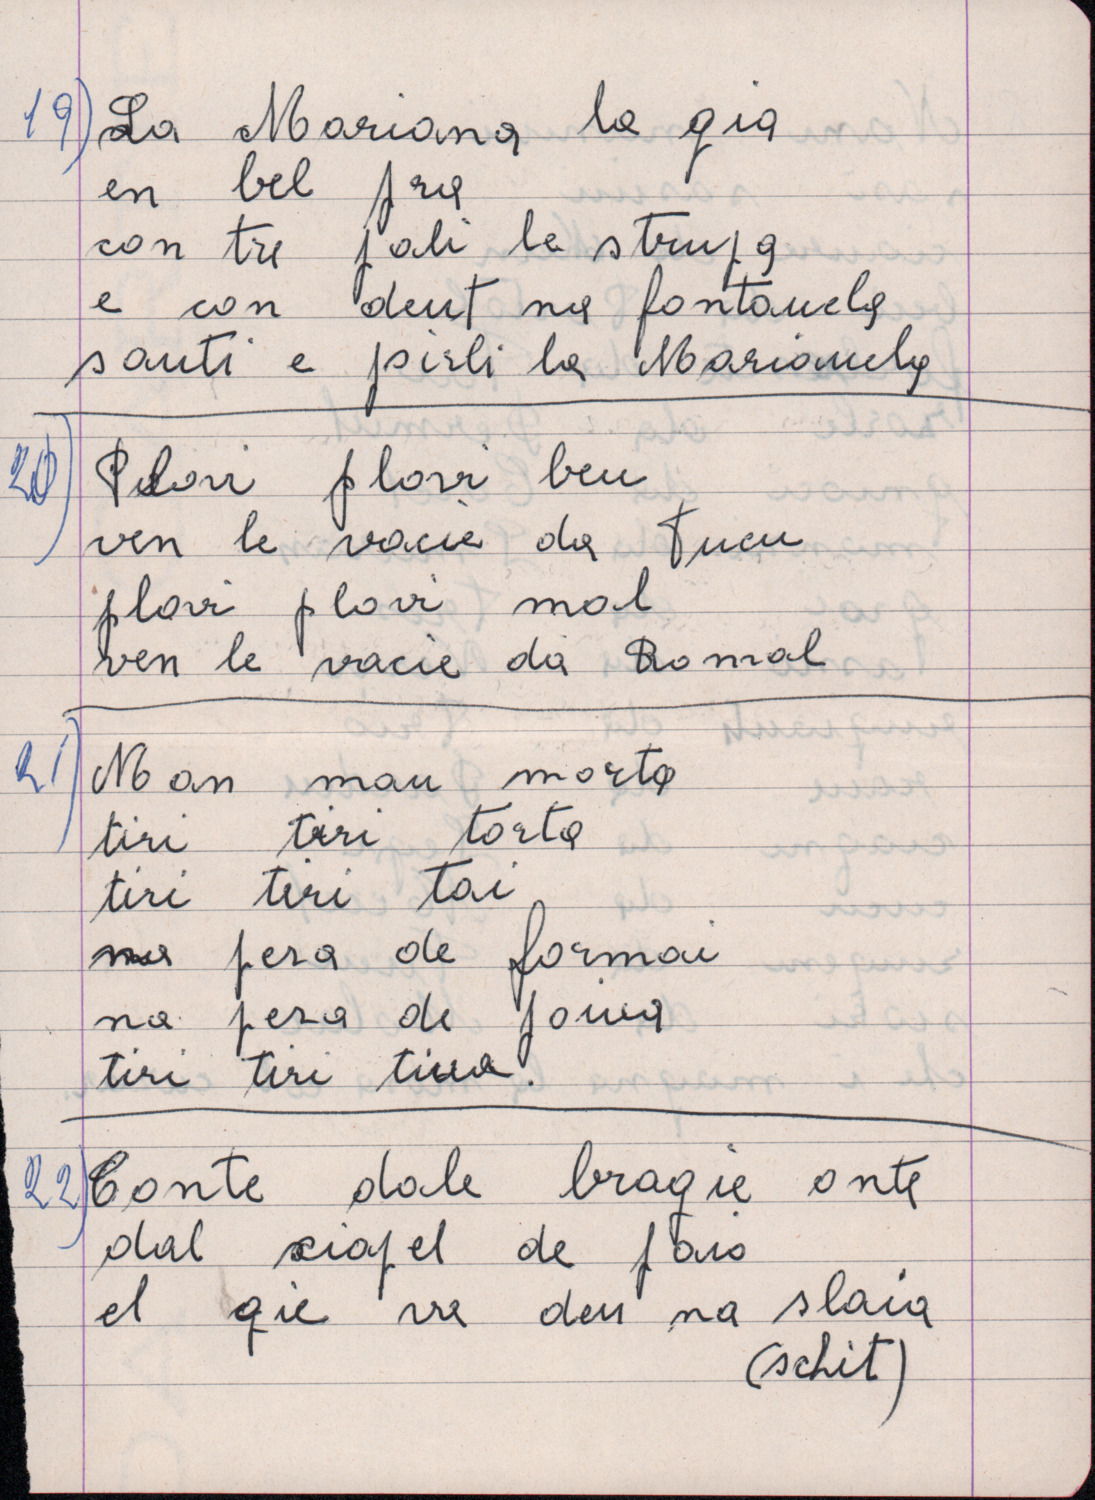 19) La Mariana la gia
en bel pra
con tre pali le strupa
e con dent na fontanela
santi e pirli la Marianela
20) Plovi plovi ben
ven le vacie da Fucu
plovi plovi mal
ven le vacie da Romal
21) Man man morta
tiri tiri torta
tiri tiri tai
na peza de formai
na peza de poina
tiri tiri tina.
22) Conte dale bragie onte
dal ciapel de paio
el gie va den na slaia
(schit)